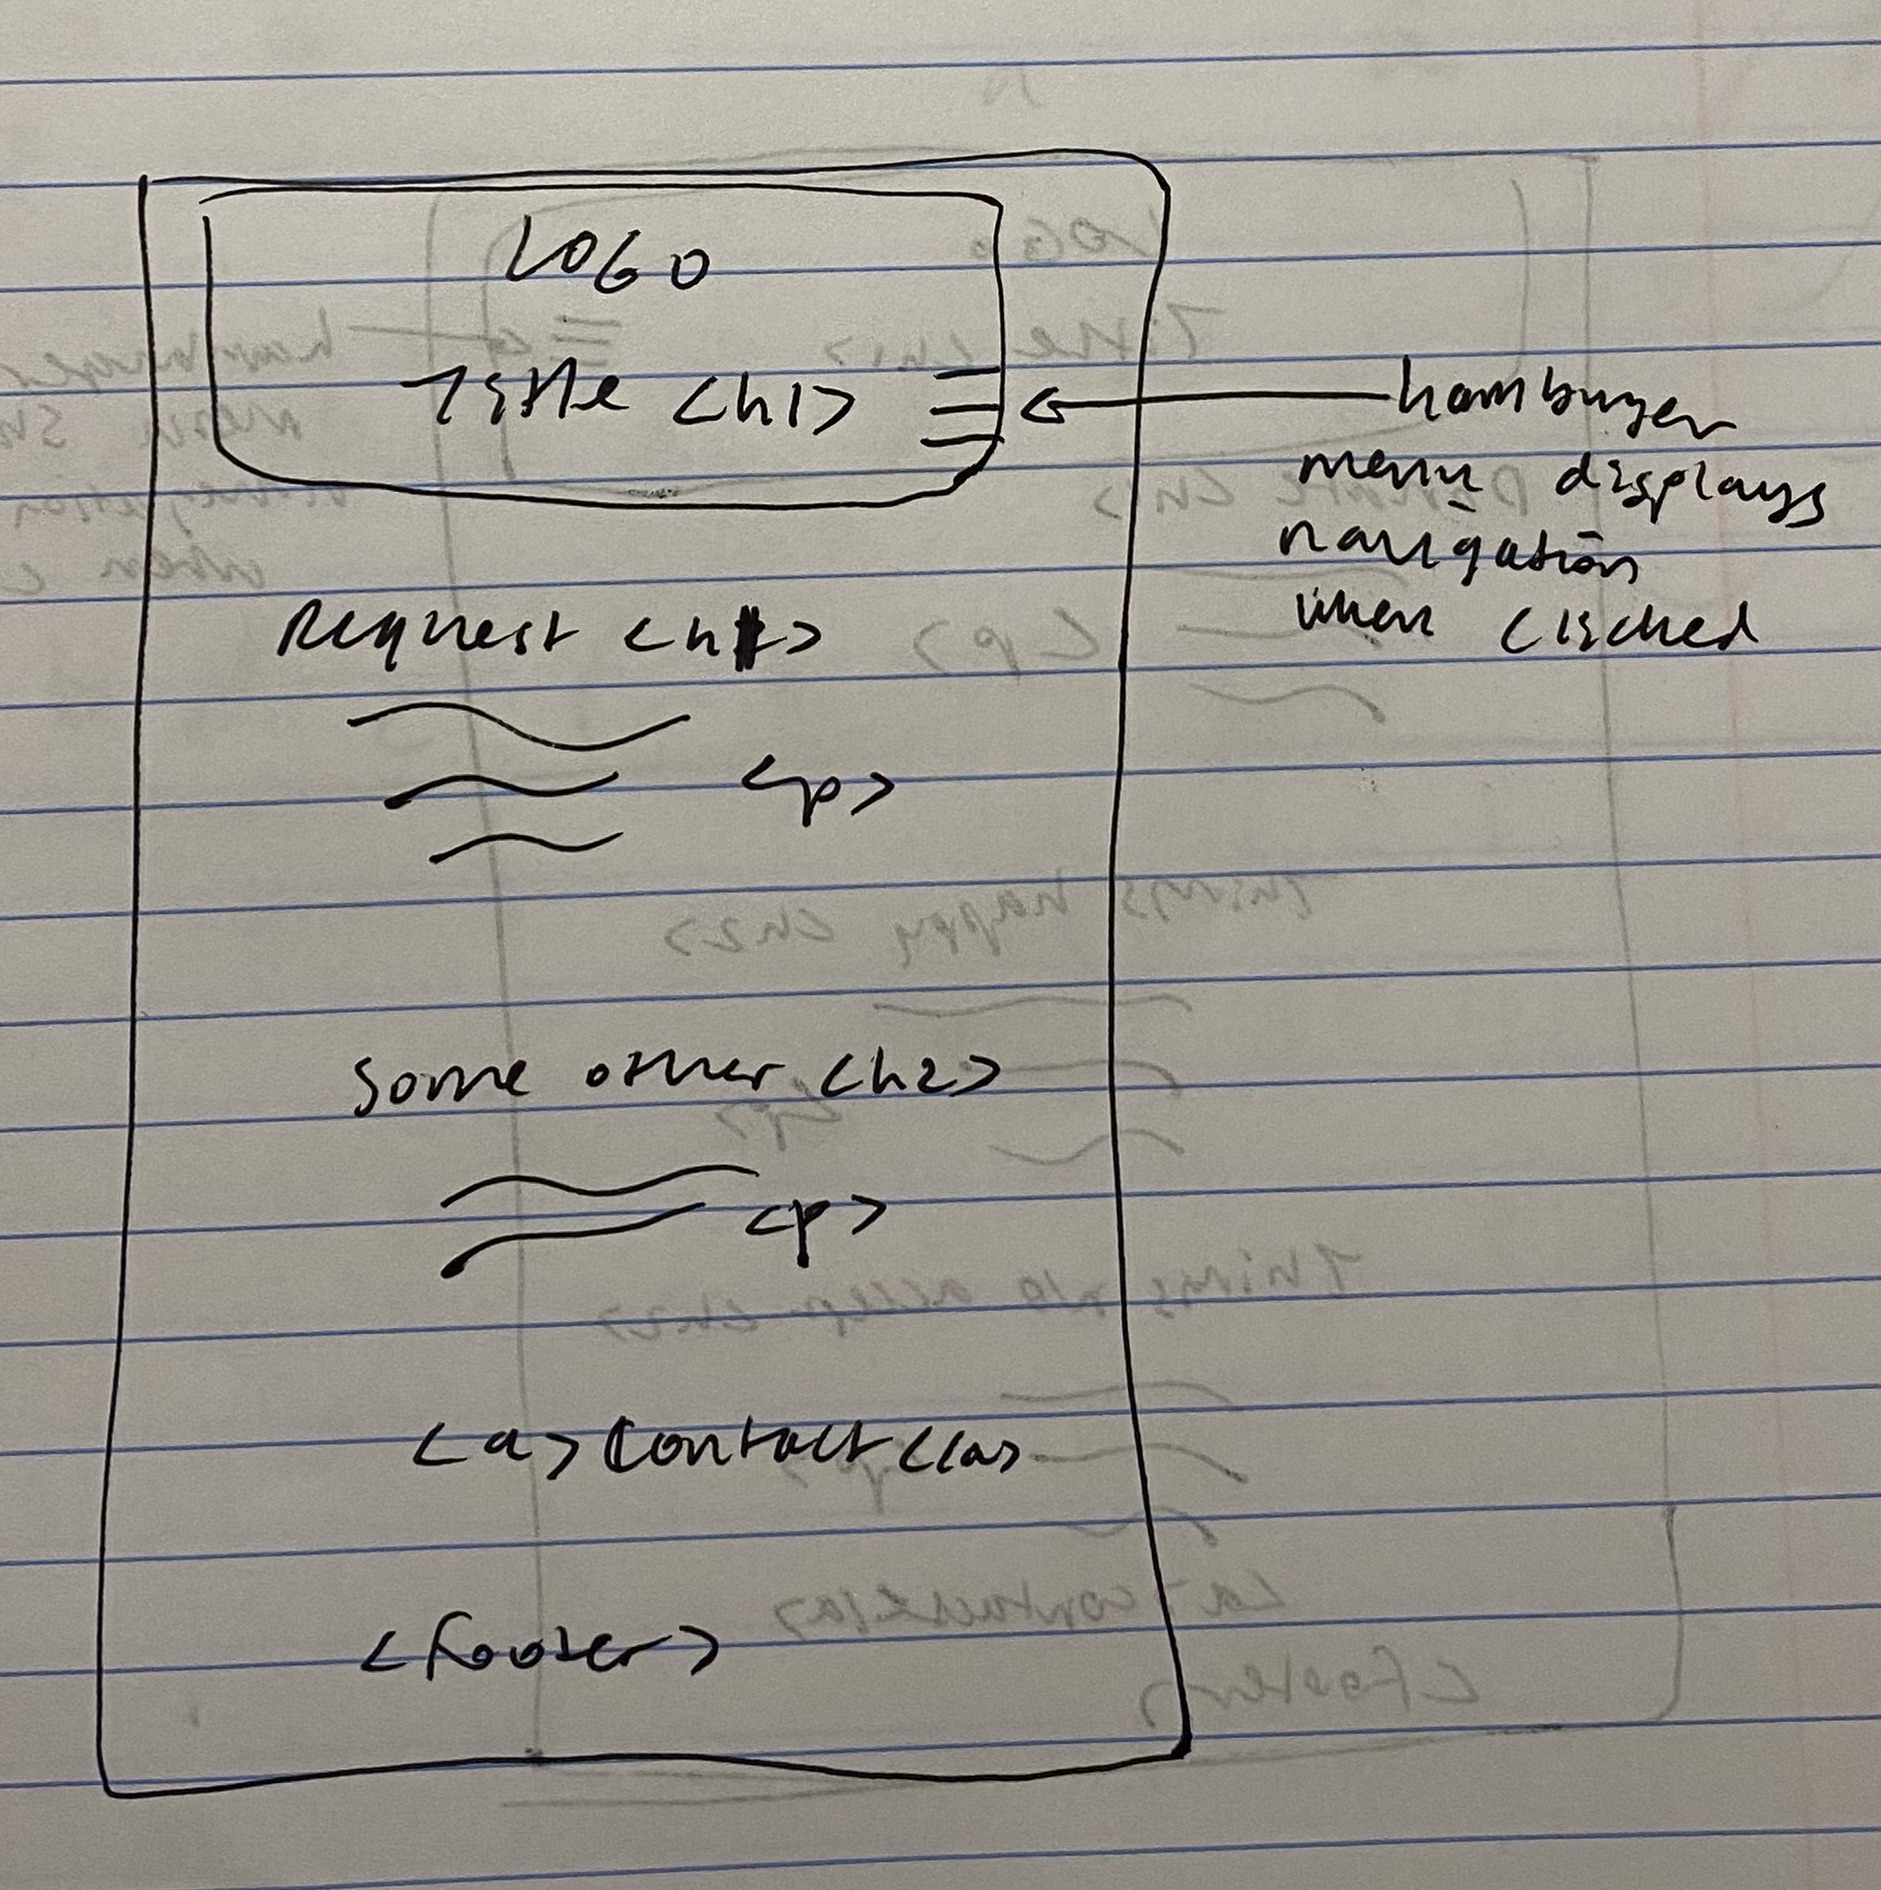 LOGO
Title <h1>
hamburger
menu displays
navigation
when clicked
Request <h1>
<p>
some other <h2>
<p>
<a> Contact </a>
<footer>